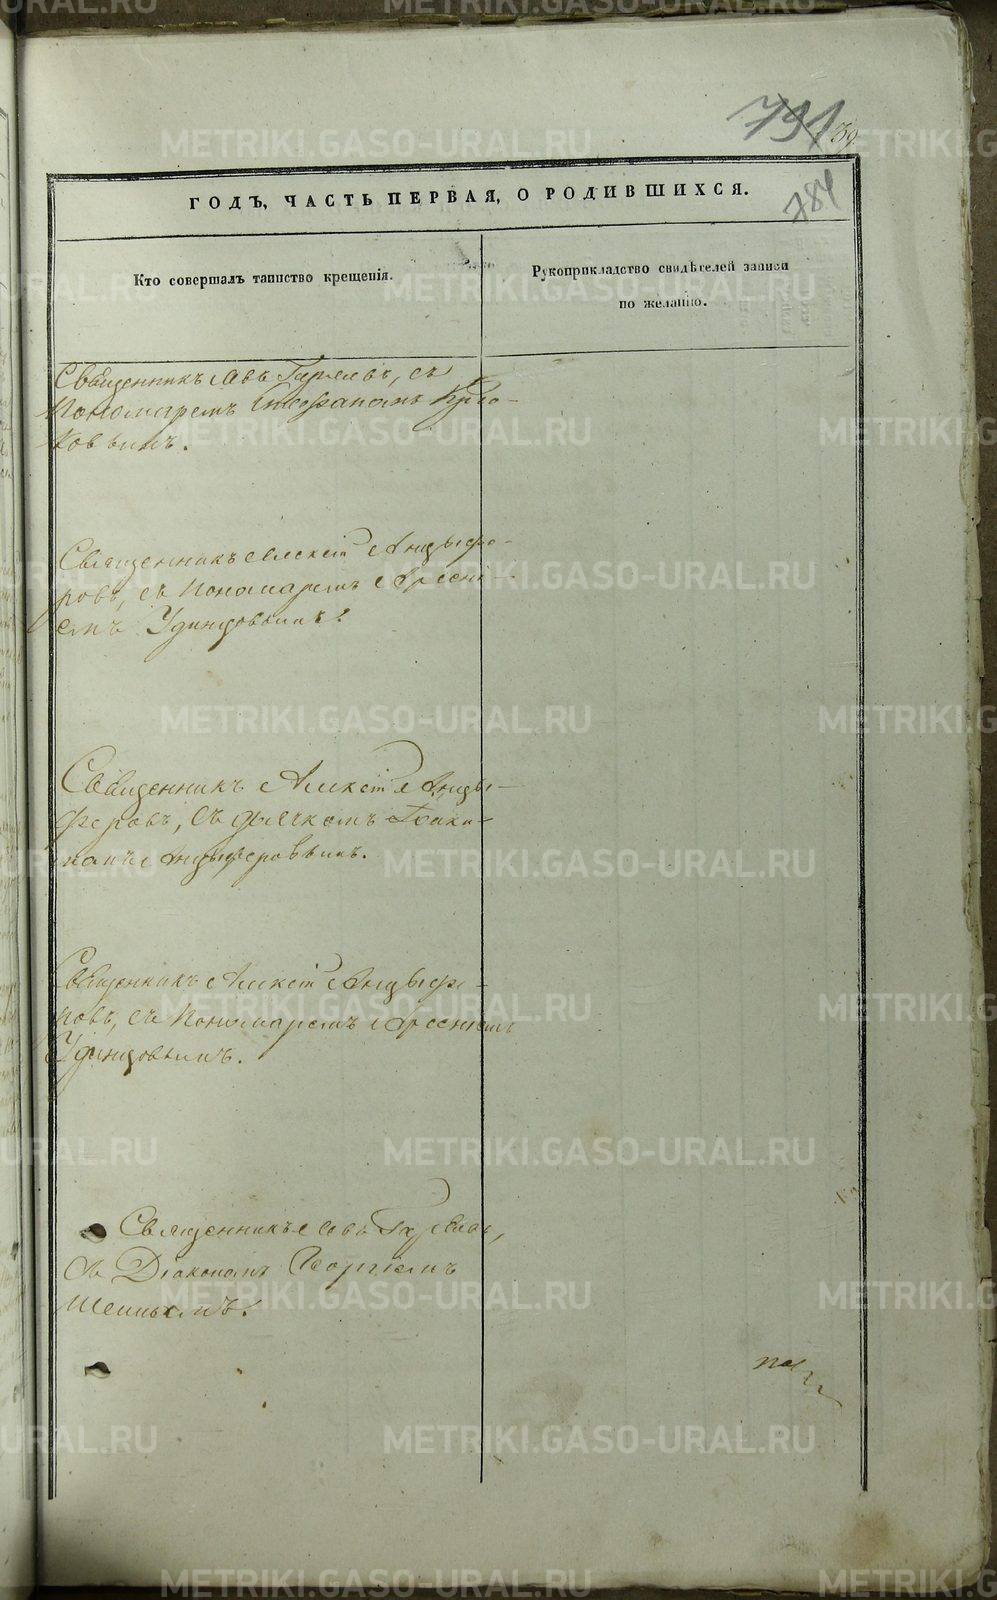 791
39
784
ГОДЪ, ЧАСТЬ ПЕРВАЯ, О РОДИВШИХСЯ.
Кто совершалъ таинство крещенія.
Рукоприкладство свидѣтелей записи
по желанію.
Священникъ Іовъ Гаряевъ, съ
Пономаремъ Стефаномъ Крю-
ковымъ.
Священникъ Алексій Анцыфе-
ровъ, съ Пономаремъ Арсені-
емъ Удинцовымъ.
Священникъ Алексій Анцы-
феровъ, съ дьячкомъ Іоаки-
момъ Анцыферовымъ.
Священникъ Алексій Анцыфе-
ровъ, съ Пономаремъ Арсеніемъ
Удинцовымъ.
Священникъ Іовъ Гаряевъ,
съ Діакономъ Георгіемъ
METRIKI.GASO-URAL.RU